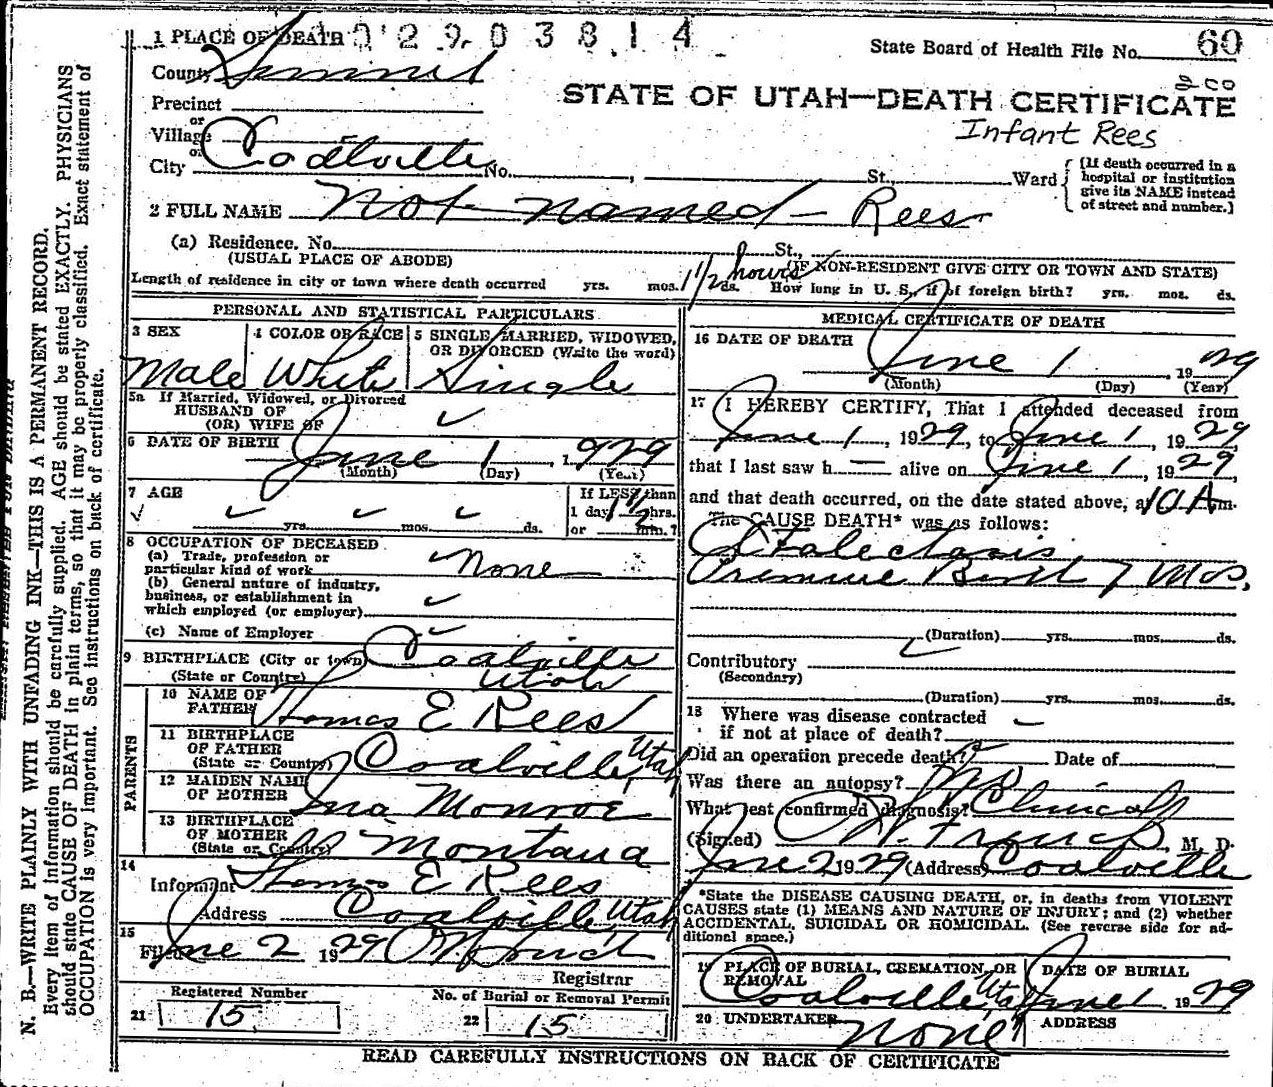 1 PLACE OF DEATH 02903814
State Board of Health File No. 60
County Summit
STATE OF UTAH—DEATH CERTIFICATE
Precinct
Infant Rees
or
Village
or
City Coalville No. , St., Ward
{(If death occurred in a hospital or institution give its NAME instead of street and number.]
2 FULL NAME Not named - Rees
(a) Residence. No. St.,
(USUAL PLACE OF ABODE) (IF NON-RESIDENT GIVE CITY OR TOWN AND STATE)
Length of residence in city or town where death occurred yrs. mos. 1 1/2 hours ds. How long in U. S., if of foreign birth? yrs. mos. ds.
PERSONAL AND STATISTICAL PARTICULARS
3 SEX 4 COLOR OR RACE 5 SINGLE, MARRIED, WIDOWED,
OR DIVORCED (Write the word)
Male White Single
5a If Married, Widowed, or Divorced
HUSBAND OF
(OR) WIFE OF
6 DATE OF BIRTH June 1, 1929
(Month) (Day) (Year)
7 AGE If LESS than
1 day 1 1/2 hrs.
yrs. mos. ds. or min.?
8 OCCUPATION OF DECEASED
(a) Trade, profession or
particular kind of work None
(b) General nature of industry,
business, or establishment in
which employed (or employer)
(c) Name of Employer
9 BIRTHPLACE (City or town) Coalville
(State or Country) Utah
PARENTS
10 NAME OF
FATHER Thomas E Rees
11 BIRTHPLACE
OF FATHER
(State or Country) Coalville, Utah
12 MAIDEN NAME
OF MOTHER Ina Monroe
13 BIRTHPLACE
OF MOTHER
(State or Country) Montana
14
Informant Thomas E Rees
Address Coalville, Utah
15
Filed June 2 1929
Registrar
Registered Number No. of Burial or Removal Permit
21 15 22 15
MEDICAL CERTIFICATE OF DEATH
16 DATE OF DEATH
June 1 1929
(Month) (Day) (Year)
17 I HEREBY CERTIFY, That I attended deceased from
June 1, 1929, to June 1, 1929
that I last saw h— alive on June 1, 1929,
and that death occurred, on the date stated above, at 10 A m.
The CAUSE DEATH* was as follows:
Atalectasis
Birth 7 Mos.
(Duration) yrs. mos. ds.
Contributory
(Secondary)
(Duration) yrs. mos. ds.
18 Where was disease contracted
if not at place of death?
Did an operation precede death? Date of
Was there an autopsy? no
What test confirmed diagnosis? Clinical
(Signed) , M. D.
June 2 1929 (Address) Coalville
*State the DISEASE CAUSING DEATH, or, in deaths from VIOLENT
CAUSES state (1) MEANS AND NATURE OF INJURY; and (2) whether
ACCIDENTAL, SUICIDAL OR HOMICIDAL. (See reverse side for ad-
ditional space.)
19 PLACE OF BURIAL, CREMATION, OR DATE OF BURIAL
REMOVAL
Coalville, Utah June 1 1929
20 UNDERTAKER none ADDRESS
READ CAREFULLY INSTRUCTIONS ON BACK OF CERTIFICATE
N. B.—WRITE PLAINLY WITH UNFADING INK—THIS IS A PERMANENT RECORD.
Every item of information should be carefully supplied. AGE should be stated EXACTLY. PHYSICIANS
should state CAUSE OF DEATH in plain terms, so that it may be properly classified. Exact statement of
OCCUPATION is very important. See instructions on back of certificate.